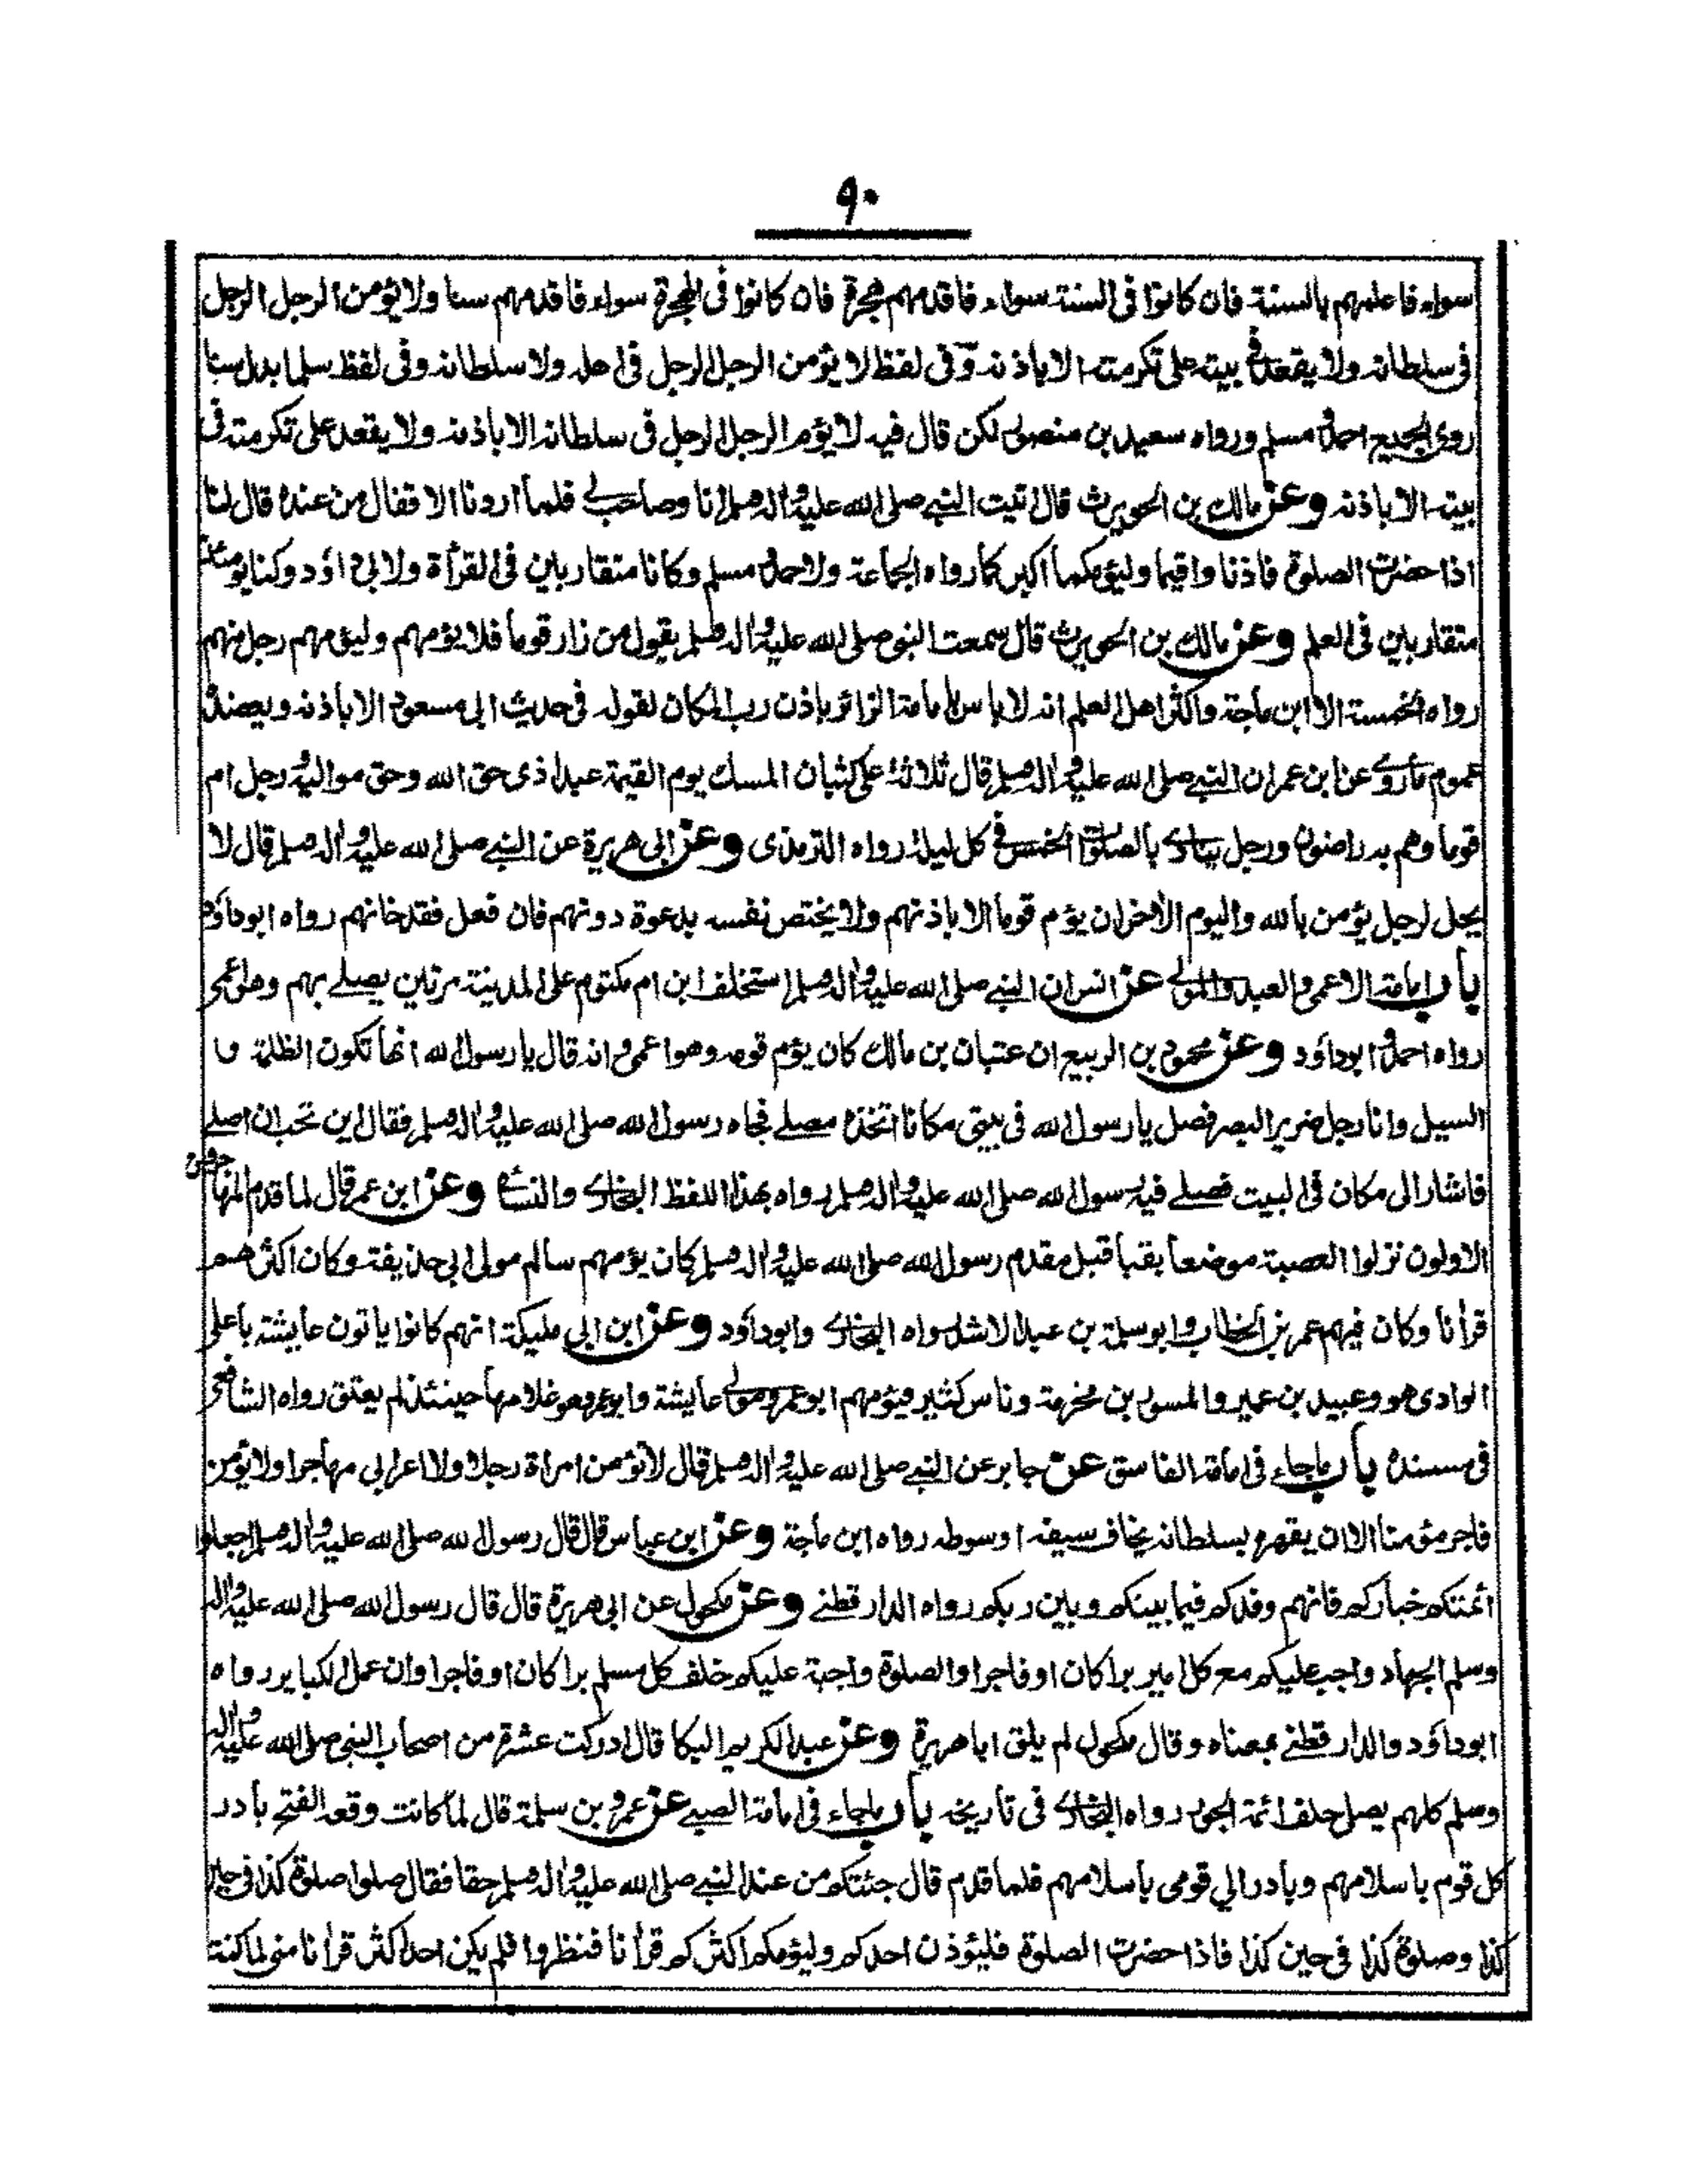 ٩٠
سواء فاعلمهم بالسنة فان كانوا فى السنة سواء فاقدمهم هجرة فان كانوا فى الهجرة سواء فاقدمهم سنا ولا يؤمن الرجل الرجل
فى سلطانه ولا يقعد فى بيته على تكرمته الا باذنه وفى لفظ لا يؤمن الرجل الرجل فى اهله ولا سلطانه وفى لفظ سلما بدل سنا
روى الجميع احمد ومسلم ورواه سعيد بن منصور لكن قال فيه لا يؤم الرجل الرجل فى سلطانه الا باذنه ولا يقعد على تكرمته فى
بيته الا باذنه وعن مالك بن الحويرث قال اتيت النبي صلى الله عليه واله وسلم انا وصاحب لي فلما اردنا الاقفال من عنده قال لنا
اذا حضرت الصلوة فاذنا واقيما وليؤمكما اكبركما رواه الجماعة ولاحمد ومسلم وكانا متقاربين فى القرأة ولابى داؤد وكنا يومئذ
متقاربين فى العلم وعن مالك بن الحويرث قال سمعت النبى صلى الله عليه واله وسلم يقول من زار قوما فلا يؤمهم وليؤمهم رجل منهم
رواه الخمسة الا ابن ماجة واكثر اهل العلم انه لا باس بامامة الزائر باذن رب المكان لقوله فى حديث ابى مسعود الا باذنه ويعضده
عموم ما روى عن ابن عمر ان النبي صلى الله عليه واله وسلم قال ثلاثة على كثبان المسك يوم القيمة عبد ادى حق الله وحق مواليه ورجل ام
قوما وهم به راضون ورجل ينادى بالصلوات الخمس فى كل ليلة رواه الترمذى وعن ابى هريرة عن النبي صلى الله عليه واله وسلم قال لا
يحل لرجل يؤمن بالله واليوم الأخر ان يؤم قوما الا باذنهم ولا يختص نفسه بدعوة دونهم فان فعل فقد خانهم رواه ابوداؤد
باب امامة الاعمى والعبد والمولى عن انس ان النبي صلى الله عليه واله وسلم استخلف ابن ام مكتوم على المدينة مرتين يصلى بهم وهو اعمى
رواه احمد وابوداؤد وعن محمود بن الربيع ان عتبان بن مالك كان يؤم قومه وهو اعمى وانه قال يا رسول الله انها تكون الظلمة و
السيل وانا رجل ضرير البصر فصل يا رسول الله فى بيتى مكانا اتخذه مصلى فجاءه رسول الله صلى الله عليه واله وسلم فقال اين تحب ان اصلى
فاشار الى مكان فى البيت فصلى فيه رسول الله صلى الله عليه واله وسلم رواه بهذا اللفظ البخارى والنسائى وعن ابن عمر قال لما قدم المهاجرون
الاولون نزلوا العصبة موضعا بقبا قبل مقدم رسول الله صلى الله عليه واله وسلم كان يؤمهم سالم مولى ابى حذيفة وكان اكثرهم
قرأنا وكان فيهم عمر بن الخطاب وابو سلمة بن عبد الاشهل رواه البخارى وابوداؤد وعن ابن ابى مليكة انهم كانوا ياتون عايشة باعلى
الوادى هو وعبيد بن عمير والمسور بن مخرمة وناس كثير فيؤمهم ابو عمرو مولى عايشة وابو عمرو غلامها حينئذ لم يعتق رواه الشافعى
فى مسنده باب ماجاء فى امامة الفاسق عن جابر عن النبي صلى الله عليه واله وسلم قال لا تؤمن امراة رجلا ولا اعرابى مهاجرا ولا يؤمن
فاجر مؤمنا الا ان يقهره بسلطانه يخاف سيفه او سوطه رواه ابن ماجة وعن ابن عباس قال قال رسول الله صلى الله عليه واله وسلم اجعلوا
أئمتكم خياركم فانهم وفدكم فيما بينكم وبين ربكم رواه الدارقطنے وعن مكحول عن ابى هريرة قال قال رسول الله صلى الله عليه واله
وسلم الجهاد واجب عليكم مع كل امير برا كان او فاجرا والصلوة واجبة عليكم خلف كل مسلم برا كان او فاجرا وان عمل الكباير رواه
ابوداؤد والدارقطنے بمعناه وقال مكحول لم يلق ابا هريرة وعن عبد الكريم البكا قال ادركت عشرة من اصحاب النبى صلى الله عليه واله
وسلم كلهم يصلى خلف ائمة الجور رواه البخارى فى تاريخه باب ماجاء فى امامة الصبي عن عمرو بن سلمة قال لما كانت وقعة الفتح بادر
كل قوم باسلامهم وبادر ابي قومى باسلامهم فلما قدم قال جئتكم من عند النبي صلى الله عليه واله وسلم حقا فقال صلوا صلوة كذا فى حين
كذا وصلوة كذا فى حين كذا فاذا حضرت الصلوة فليؤذن احدكم وليؤمكم اكثركم قرأنا فنظروا فلم يكن احد اكثر قرأنا منى لما كنت